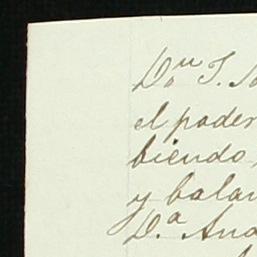 Dⁿ J.
el poder
biendo
y balan
D.ª Ana